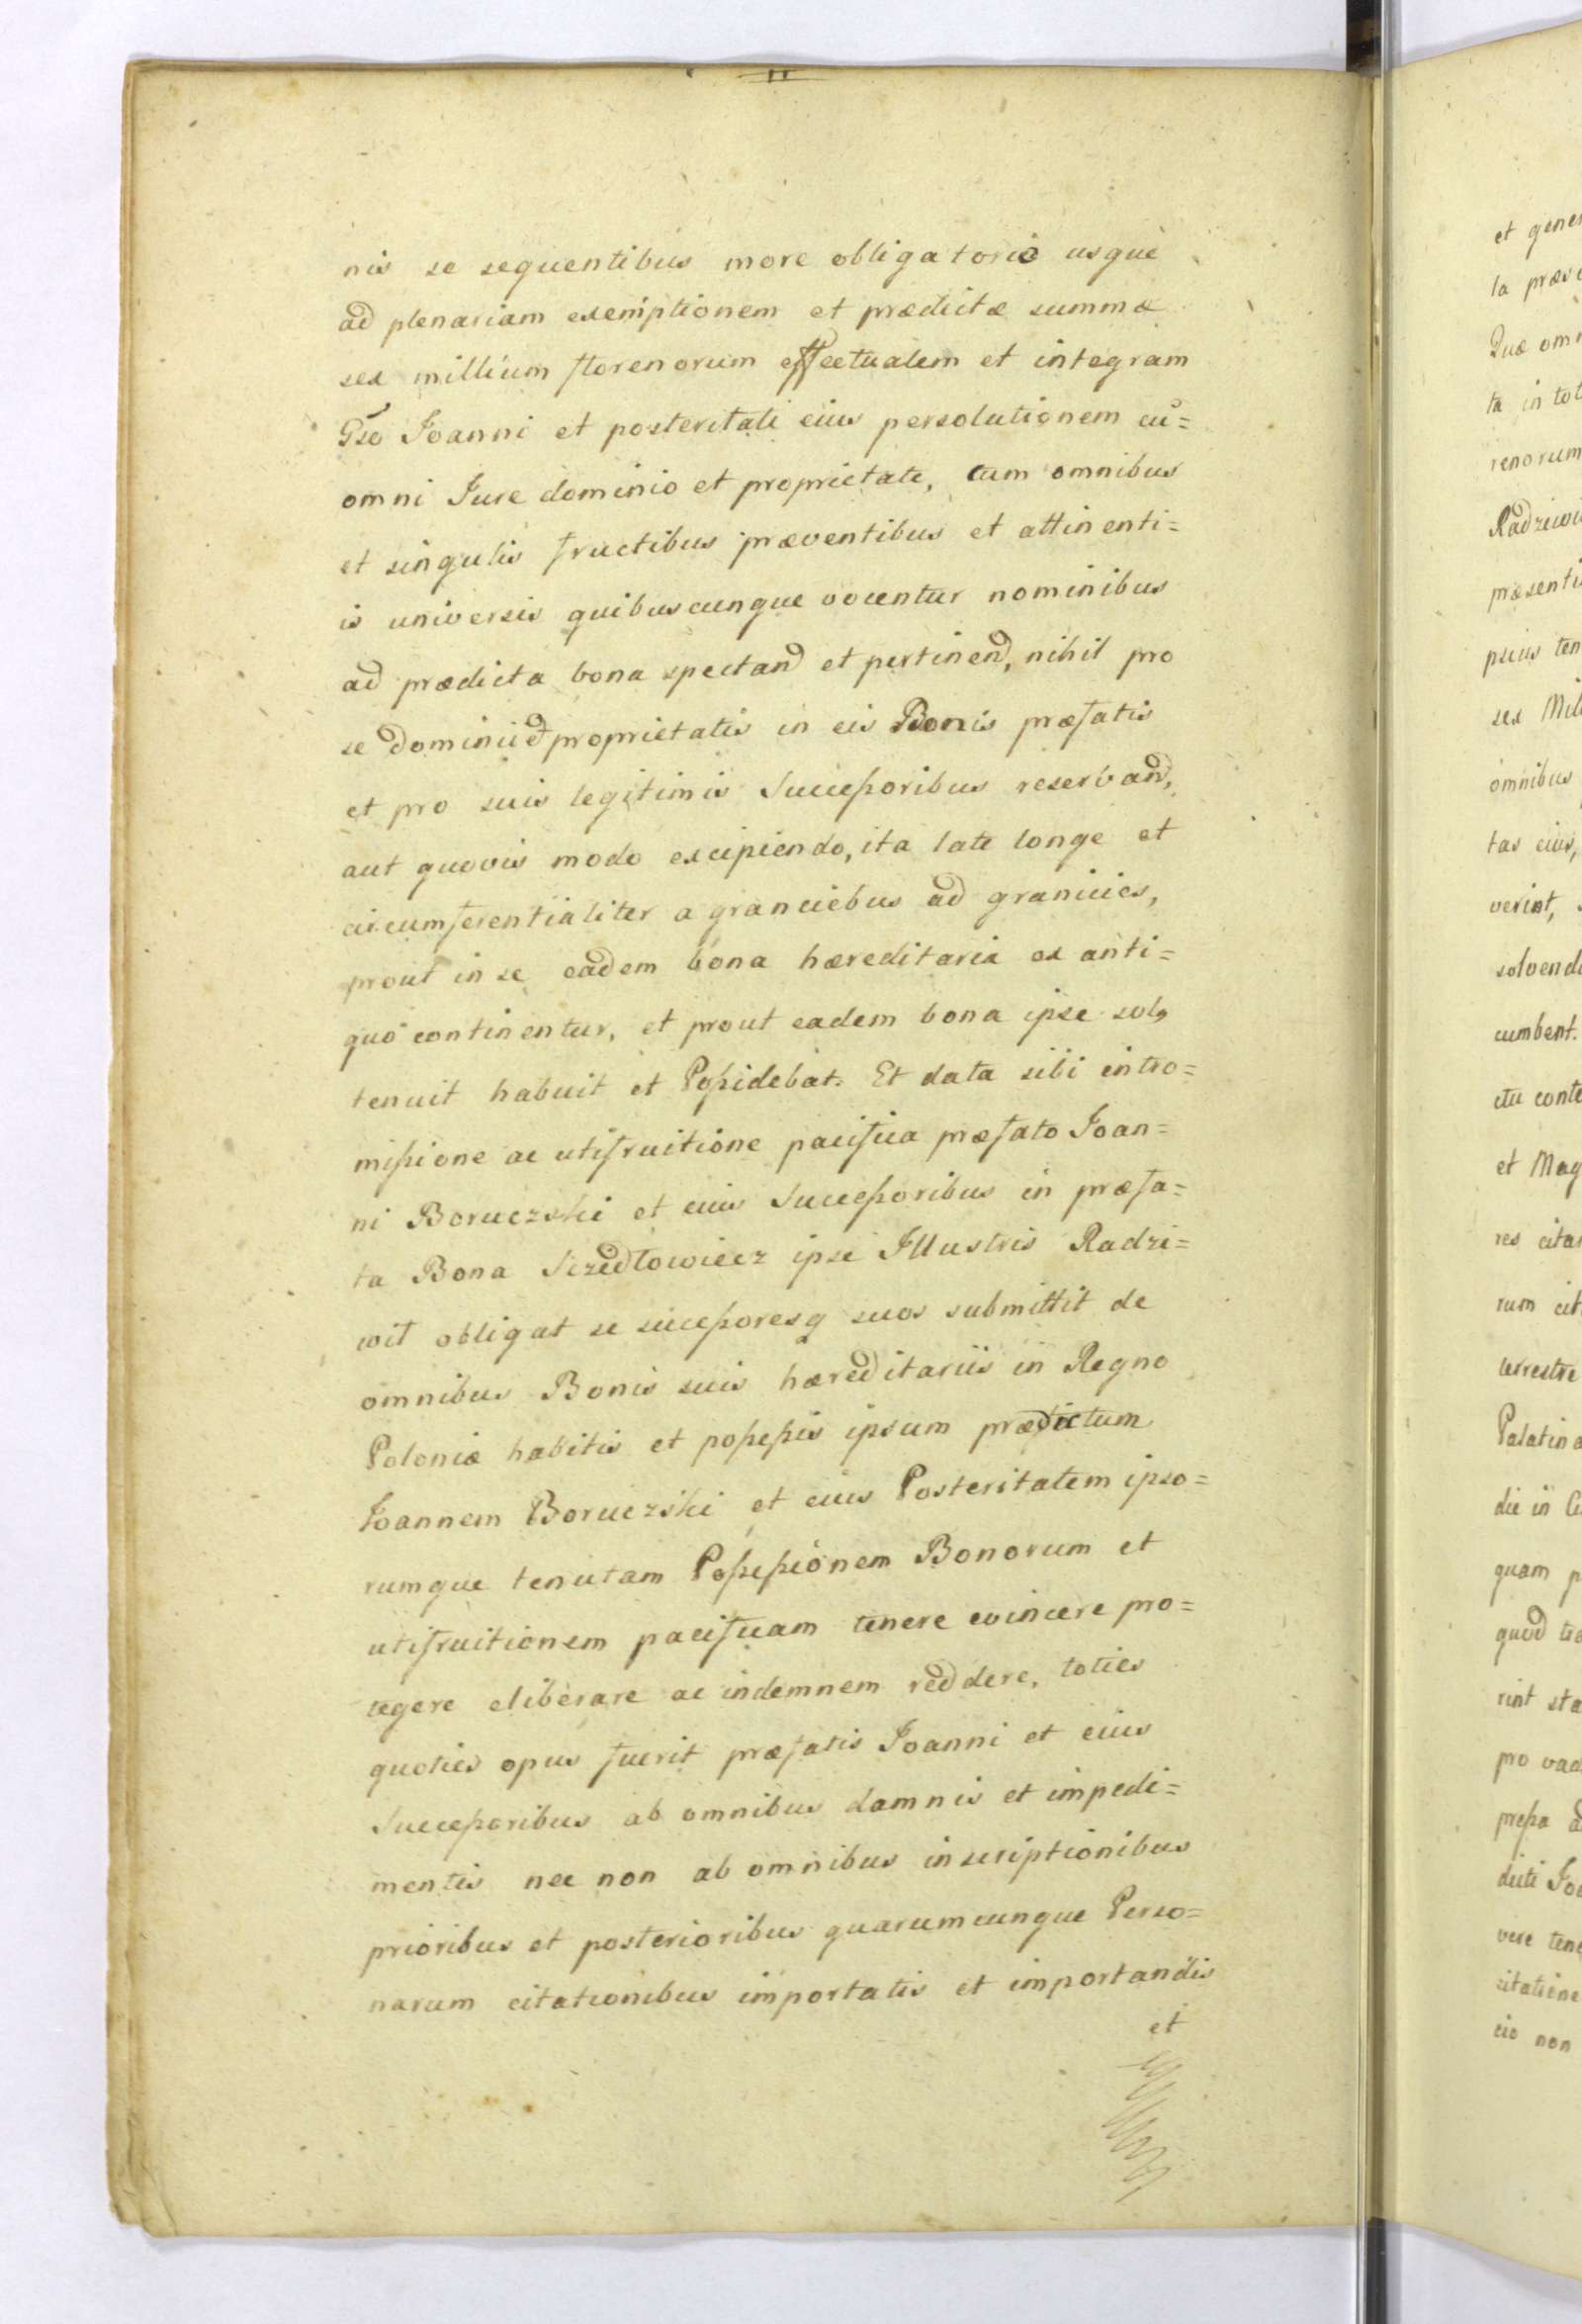 nis se sequentibus more obligatorio usquè
ad plenariam exemptionem et prædictæ summæ
sex millium florenorum effectualem et integram
Gso Joanni et posteritati eius persolutionem cũ=
omni Jure dominio et proprietate, cum omnibus
et singulis fructibus præventibus et attinenti=
is universis quibuscunque vocentur nominibus
ad prædicta bona spectand et pertinend, nihil pro
se dominii et proprietatis in eis Bonis præfatis
et pro suis legitimis Successoribus reservand,
aut quovis modo excipiendo, ita late longe et
circumferentialiter a granciebus ad granicies,
prout in se eadem bona hæreditaria ex anti=
quo continentur, et prout eadem bona ipse solꝰ
tenuit habuit et Possidebat. Et data sibi intro=
missione ac utifruitione pacifica præfato Joan=
ni Boruczski et eius Successoribus in præfa=
ta Bona Sczedłowiecz ipse Illustris Radzi=
wił obligat se successoresq suos submittit de
omnibus Bonis suis hæreditariis in Regno
Poloniæ habitis et possessis ipsum prædictum
Joannem Boruczski et eius Posteritatem ipso=
rumque tenutam Possessionem Bonorum et
utifruitionem pacificam tenere evincere pro=
tegere eliberare ac indemnem reddere, toties
quoties opus fuerit præfatis Joanni et eius
Successoribus ab omnibus damnis et impedi=
mentis nec non ab omnibus inscriptionibus
prioribus et posterioribus quarumcunque Perso=
narum citationibus importatis et importandis
et
et gener
la præs
Quæ omn
ta in tot
renorum
Radziwi
præsenti
psius ten
sex Mil
omnibus
tas eius,
verint,
solvend
cumbent.
ctu conte
et Mag
res cita
rum cit
terrestre
Palatina
die in C
quam p
quod te
rint sta
pro vad
pressa a
dicti Joa
vere ten
citatione
cio non